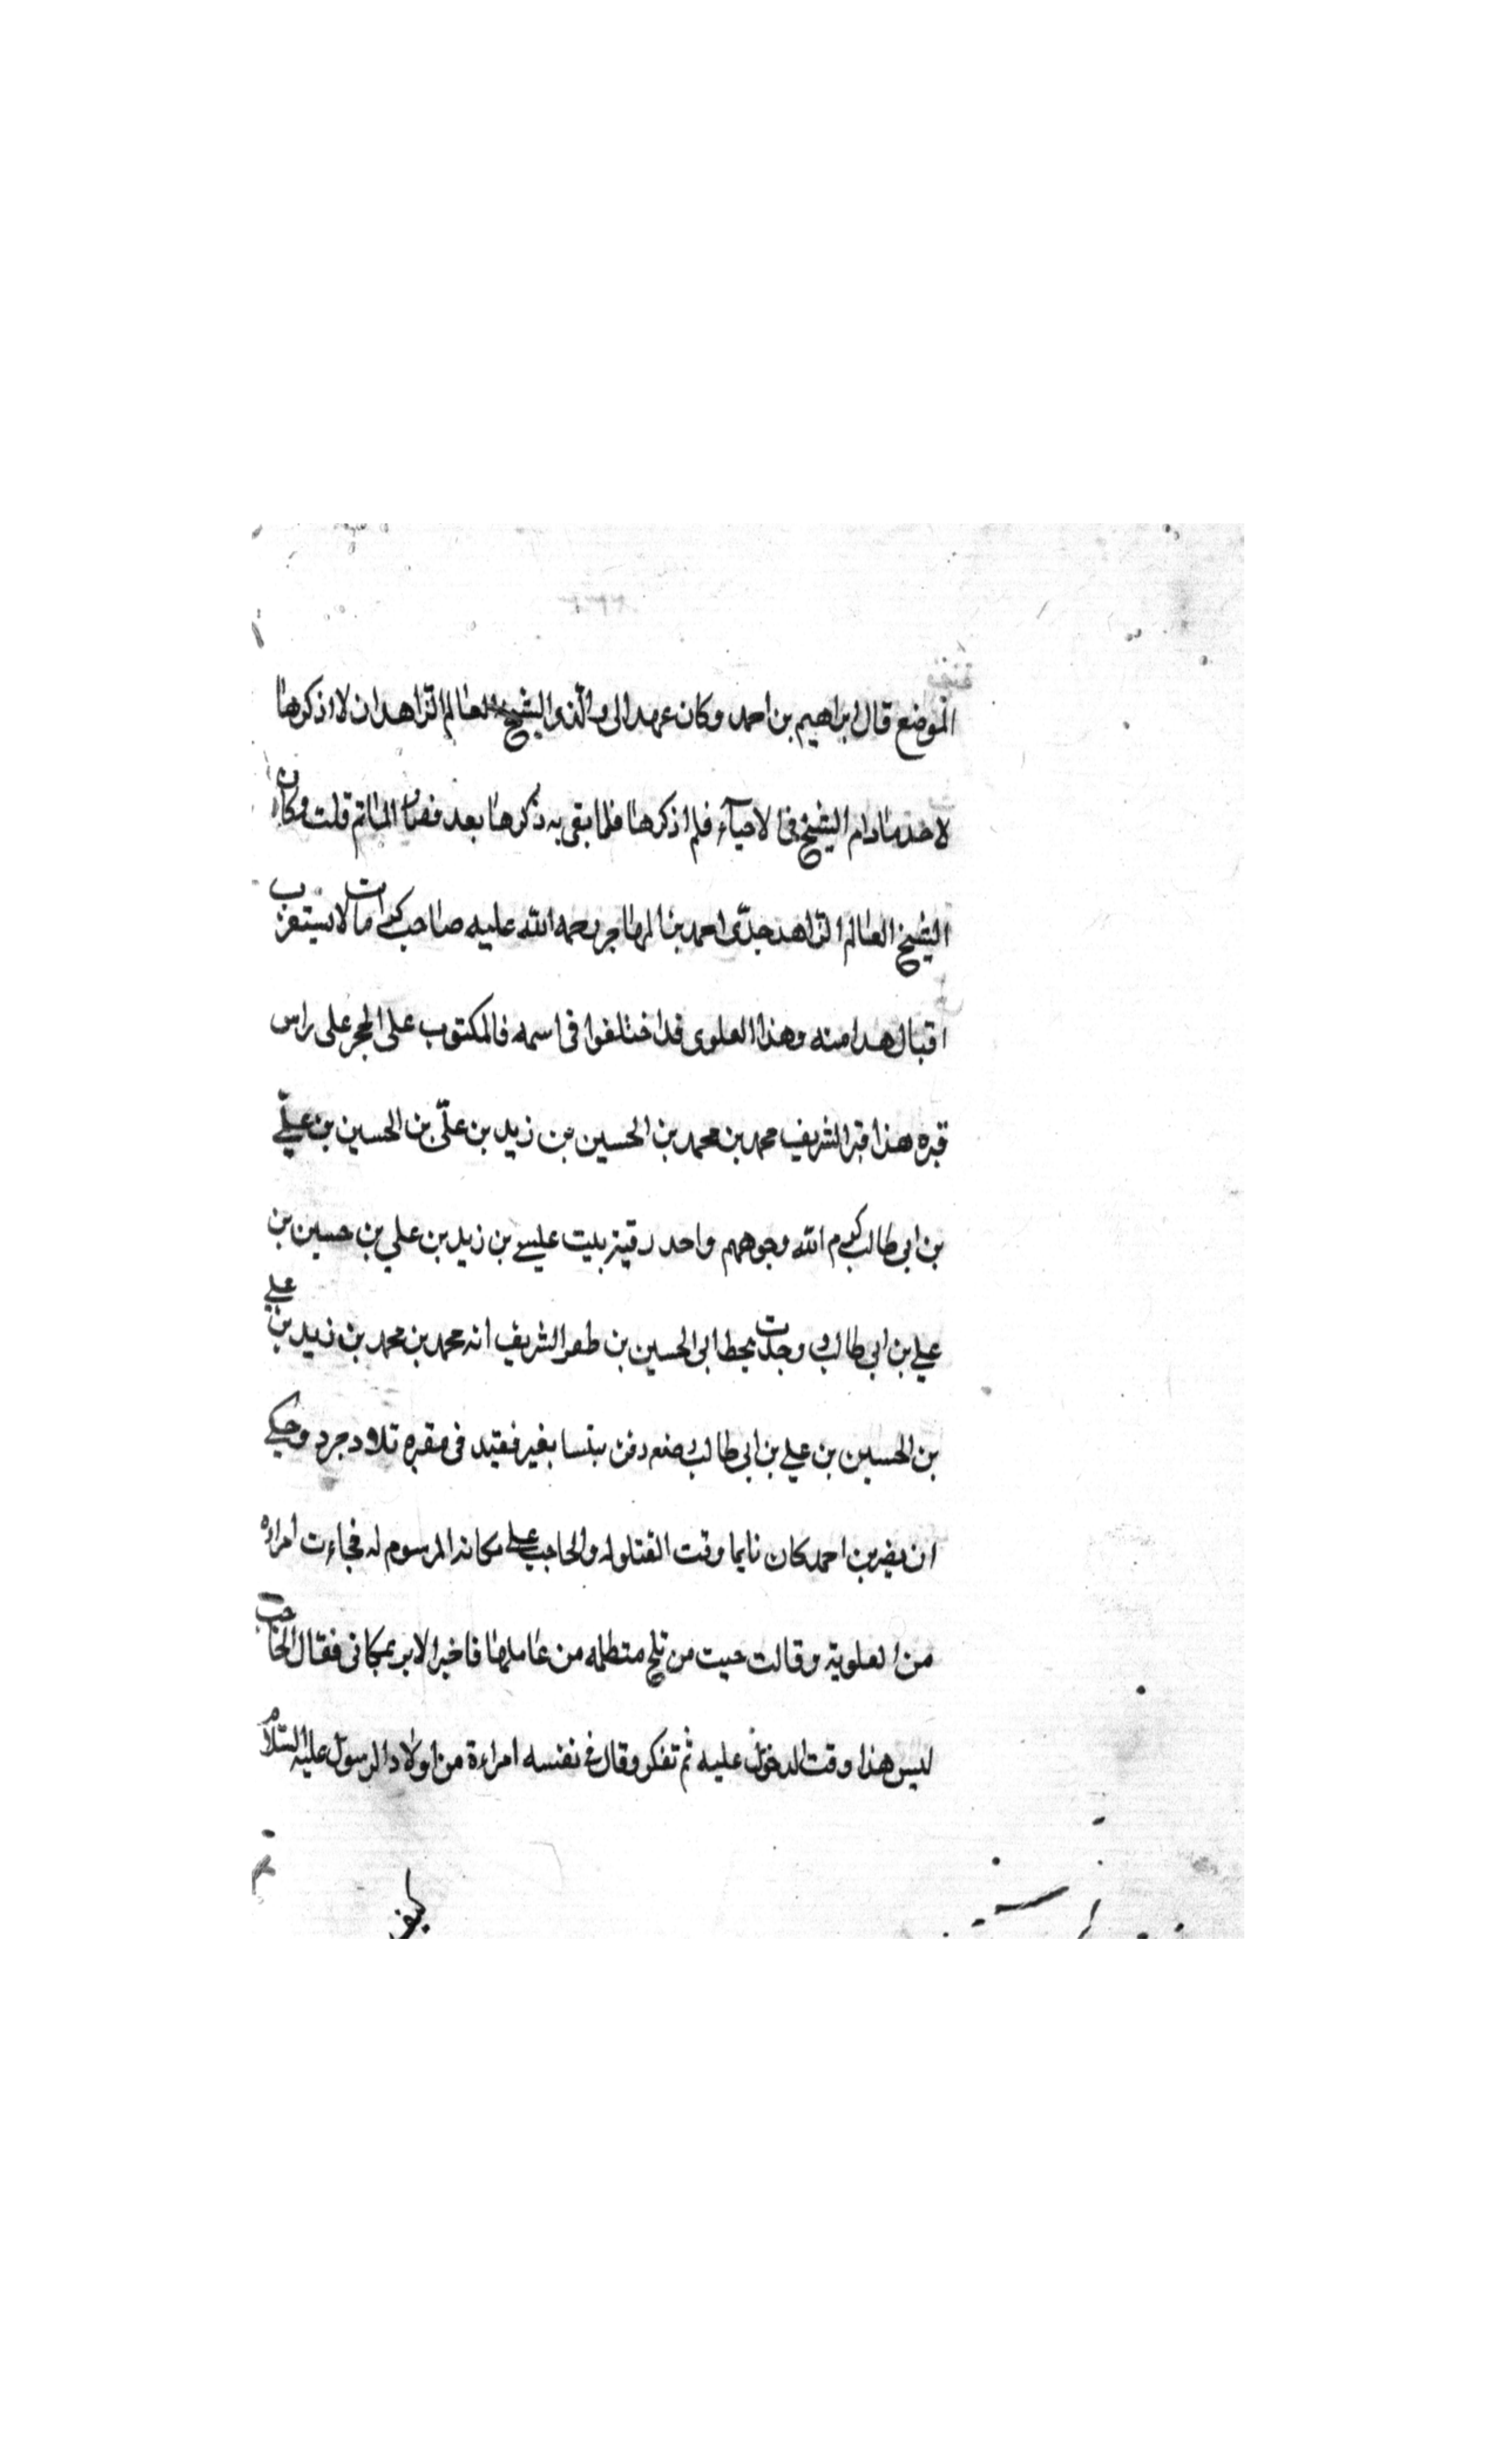 الموضع قال ابراهيم بن احمد وكان عهد الى والذى الشيخ العالم الزاهد ان لا اذكرها
لاحد مادام الشيخ فى الاحياء فلم اذكرها فلما بقى به ذكرها بعد المأتم قلت وكان
الشيخ العالم الزاهد جدّى احمد بن المهاجر رحمه الله عليه صاحب كرامات لا يستغرب
اقبال هذا منه وهذا العلوى قد اختلفوا فى اسمه فالمكتوب على الحجر على راس
قبره هذا قبر الشريف محمد بن محمد بن الحسين بن زيد بن علىّ بن الحسين بن علي
بن ابى طالب كرم الله وجوههم واحد بيت عيسے بن زيد بن علي بن حسين بن
علي بن ابى طالب وجدت بخط ابى الحسين بن الشريف انه محمد بن محمد بن زيد بن علي
بن الحسين بن علي بن ابى طالب دفن بغير فقيد فى مقبره وحكي
ان نصر بن احمد كان نايما وقت القيلوله والحاجب على مكانه المرسوم له فجاءت امراءه
من العلوية وقالت جيت من بلخ متظلمه من عاملها فاخبر الامير بمكانى فقال الحاجب
ليس هذا وقت الدخول عليه ثم تفكر وقال فى نفسه امراءة من اولاد الرسول عليه السلام